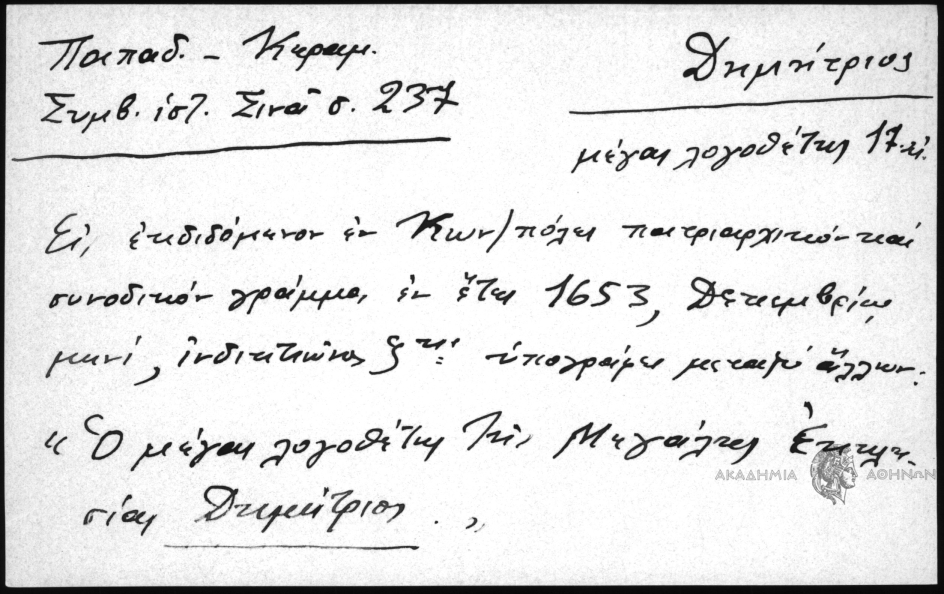 Παπαδ. - Κεραμ.
Συμβ. ἱστ. Σινᾶ σ. 237
Δημήτριος
μέγας λογοθέτης 17.αἰ.
Εἰς ἐκδιδόμενον ἐν Κων/πόλει πατριαρχικόν καί
συνοδικόν γράμμα, ἐν ἔτει 1653, Δεκεμβρίῳ
μηνί, ἰνδικτιῶνος ζ ης: ὑπογράφει μεταξύ ἄλλων:
« Ὁ μέγας λογοθέτης τῆς Μεγάλης Ἐκκλη-
σίας Δημήτριος . »
ΑΚΑΔΗΜΙΑ ΑΘΗΝΩΝ